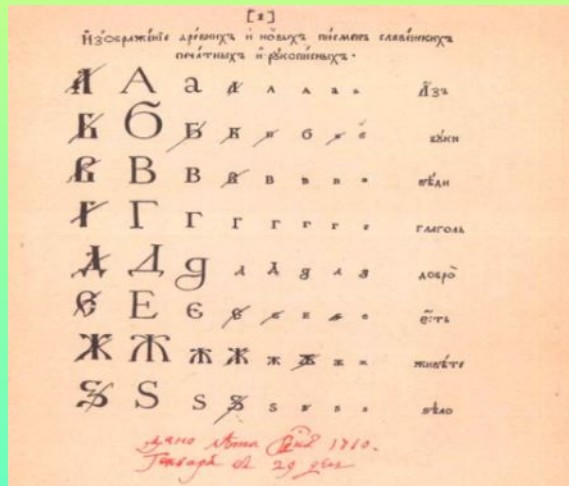 [1]
Изображéнїе дрéвнихъ и҆ нóвыхъ пи́сменъ славéнскихъ
печáтныхъ и҆ рꙋкопи́сныхъ.
А А а а а а а а А҆зъ
Б Б Б Б Б б б б бꙋ́ки
В В в в в в в в вѣ́ди
Г Г г г г г г г глаголь
Д Д д д д д д д добрò
Є Е є є є є є є є҆́сть
Ж Ж ж ж ж ж ж ж живѣ́те
Ѕ Ѕ ѕ ѕ ѕ ѕ ѕ ѕ ѕѣлò
дано лѣта 1710.
Генваря 29 дня